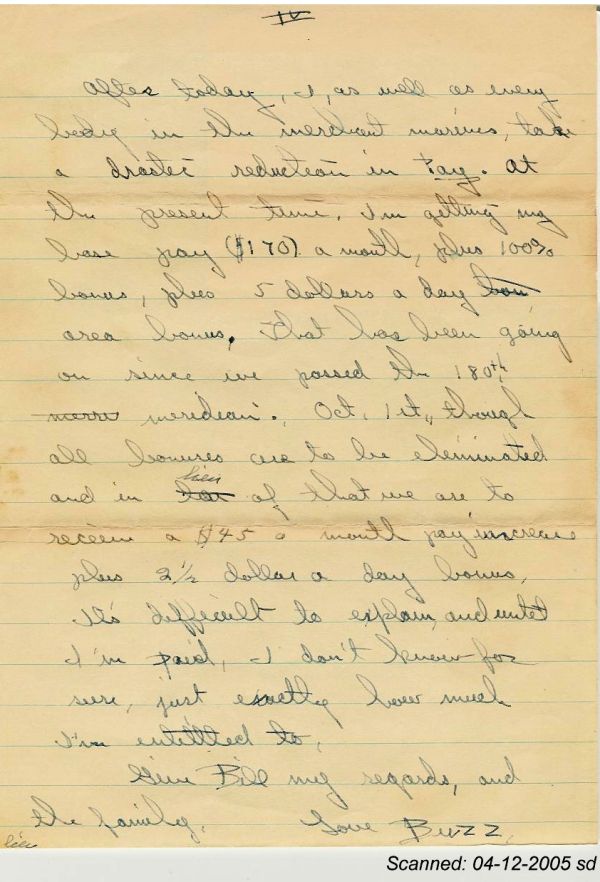 IV
After today, I, as well as every
body in the merchant marines, take
a drastic reduction in Pay. At
the present time, I'm getting my
base pay ($170) a month, plus 100%
bonus, plus 5 dollars a day bon
area bonus. That has been going
on since we passed the 180th
merri meridean. Oct. 1st, though
all bonuses are to be eleminated
lieu
and in of that we are to
receive a $45 a month pay increase
plus 2 1/2 dollar a day bonus.
It's difficult to explain, and until
I'm paid, I don't know for
sure, just exactly how much
I'm entittled to.
Give Bill my regards, and
the family. Love Buzz.
lieu
Scanned: 04-12-2005 sd